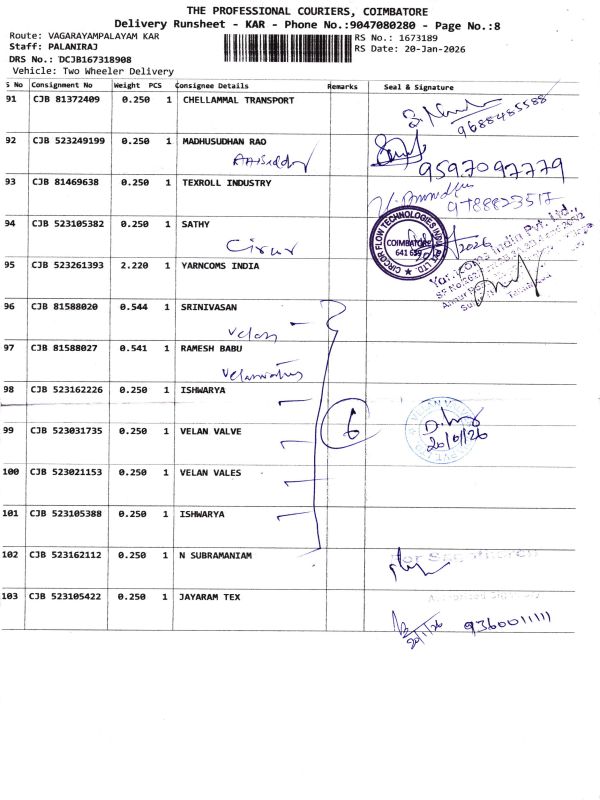 THE PROFESSIONAL COURIERS, COIMBATORE
Delivery Runsheet - KAR - Phone No.:9047080280 - Page No.:8
Route: VAGARAYAMPALAYAM KAR
RS No.: 1673189
Staff: PALANIRAJ
RS Date: 20-Jan-2026
DRS No.: DCJB167318908
Vehicle: Two Wheeler Delivery
S No Consignment No Weight PCS Consignee Details Remarks Seal & Signature
91 CJB 81372409 0.250 1 CHELLAMMAL TRANSPORT
9688485588
92 CJB 523249199 0.250 1 MADHUSUDHAN RAO
9597097779
93 CJB 81469638 0.250 1 TEXROLL INDUSTRY
9788823517
94 CJB 523105382 0.250 1 SATHY
CIRCOR FLOW TECHNOLOGIES INDIA PVT LTD
COIMBATORE
641 659
95 CJB 523261393 2.220 1 YARNCOMS INDIA
Yarncoms India Pvt. Ltd.,
96 CJB 81588020 0.544 1 SRINIVASAN
Velan
97 CJB 81588027 0.541 1 RAMESH BABU
98 CJB 523162226 0.250 1 ISHWARYA
6
99 CJB 523031735 0.250 1 VELAN VALVE
20/01/26
100 CJB 523021153 0.250 1 VELAN VALES
101 CJB 523105388 0.250 1 ISHWARYA
102 CJB 523162112 0.250 1 N SUBRAMANIAM
103 CJB 523105422 0.250 1 JAYARAM TEX
20/1/26 9360011111